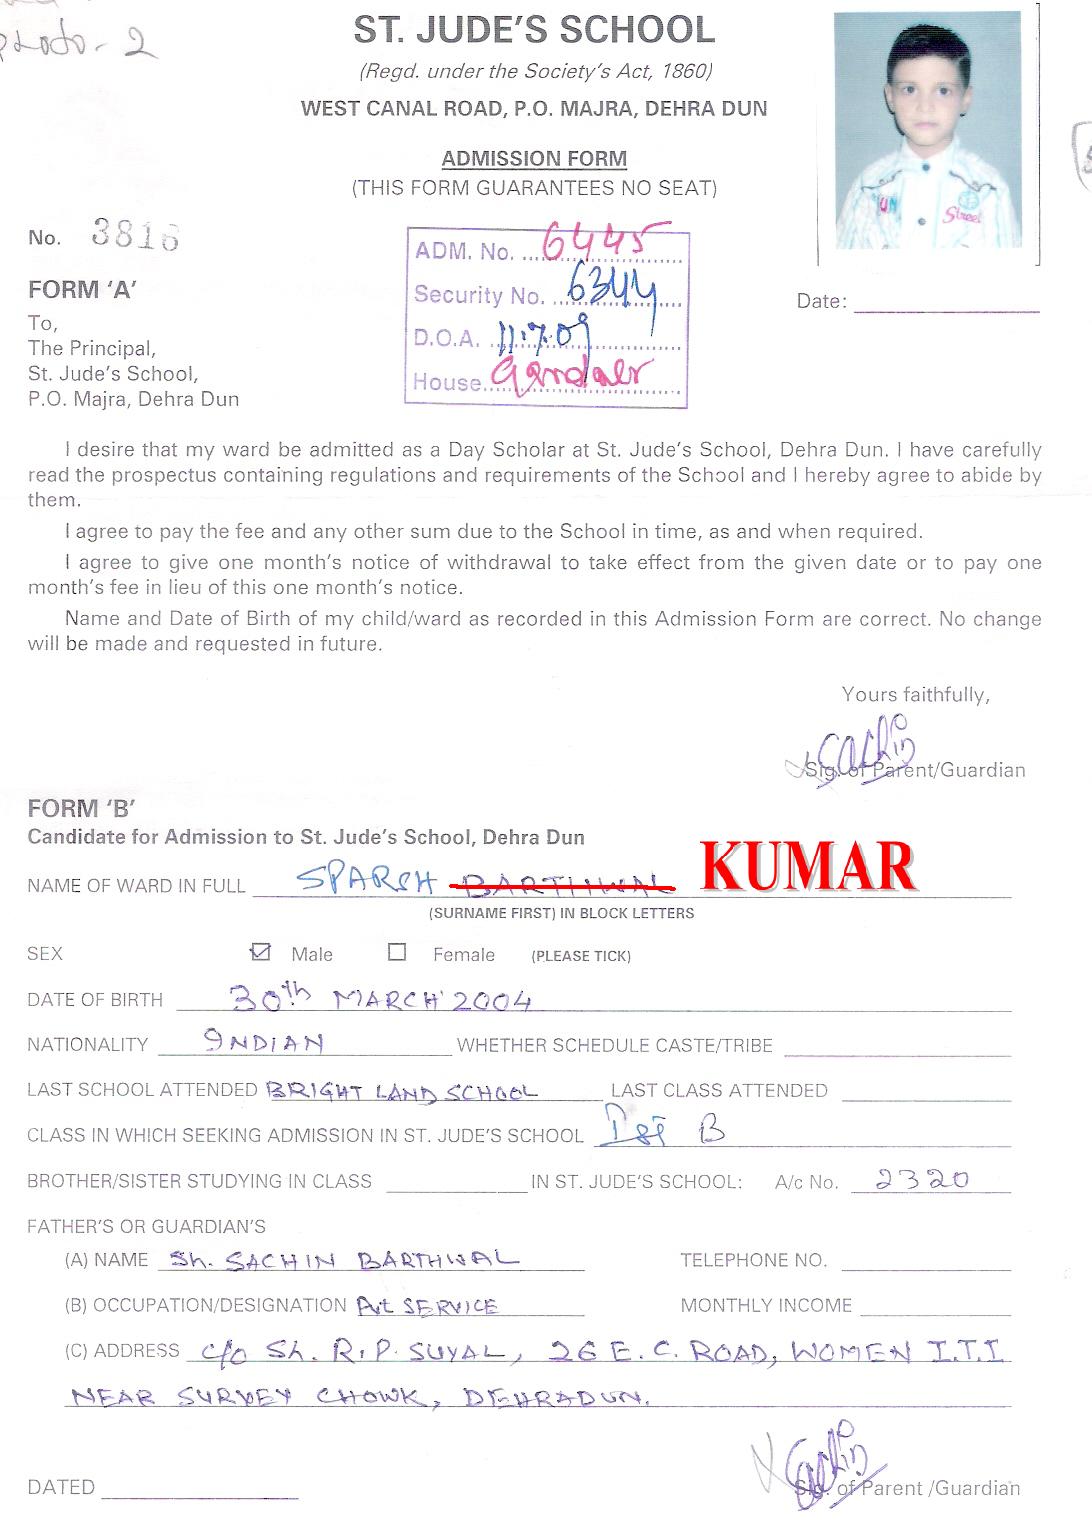 - 2
ST. JUDE'S SCHOOL
(Regd. under the Society's Act, 1860)
WEST CANAL ROAD, P.O. MAJRA, DEHRA DUN
ADMISSION FORM
(THIS FORM GUARANTEES NO SEAT)
No. 3816
ADM. No. 6445
Security No. 6344
D.O.A. 11.7.09
House
Street
FORM 'A'
Date:
To,
The Principal,
St. Jude's School,
P.O. Majra, Dehra Dun
I desire that my ward be admitted as a Day Scholar at St. Jude's School, Dehra Dun. I have carefully
read the prospectus containing regulations and requirements of the School and I hereby agree to abide by
them.
I agree to pay the fee and any other sum due to the School in time, as and when required.
I agree to give one month's notice of withdrawal to take effect from the given date or to pay one
month's fee in lieu of this one month's notice.
Name and Date of Birth of my child/ward as recorded in this Admission Form are correct. No change
will be made and requested in future.
Yours faithfully,
Sachin
Sig. of Parent/Guardian
FORM 'B'
Candidate for Admission to St. Jude's School, Dehra Dun
NAME OF WARD IN FULL SPARSH BARTHWAL KUMAR
(SURNAME FIRST) IN BLOCK LETTERS
SEX Male Female (PLEASE TICK)
DATE OF BIRTH 30th MARCH 2004
NATIONALITY INDIAN WHETHER SCHEDULE CASTE/TRIBE
LAST SCHOOL ATTENDED BRIGHT LAND SCHOOL LAST CLASS ATTENDED
CLASS IN WHICH SEEKING ADMISSION IN ST. JUDE'S SCHOOL Ist B
BROTHER/SISTER STUDYING IN CLASS IN ST. JUDE'S SCHOOL: A/c No. 2320
FATHER'S OR GUARDIAN'S
(A) NAME Sh. SACHIN BARTHWAL TELEPHONE NO.
(B) OCCUPATION/DESIGNATION Pvt SERVICE MONTHLY INCOME
(C) ADDRESS c/o Sh. R.P. SUYAL, 26 E.C. ROAD, WOMEN I.T.I
NEAR SURVEY CHOWK, DEHRADUN.
Sachin
DATED Sig. of Parent /Guardian